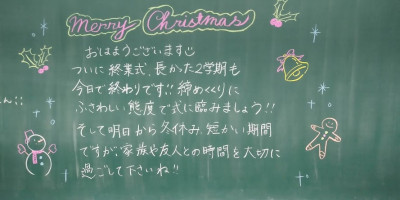 Merry Christmas
おはようございます
ついに終業式、長かった2学期も
今日で終わりです!! 締めくくりに
ふさわしい態度で式に臨みましょう!!
そして明日から冬休み、短かい期間
ですが、家族や友人との時間を大切に
過ごして下さいね!!